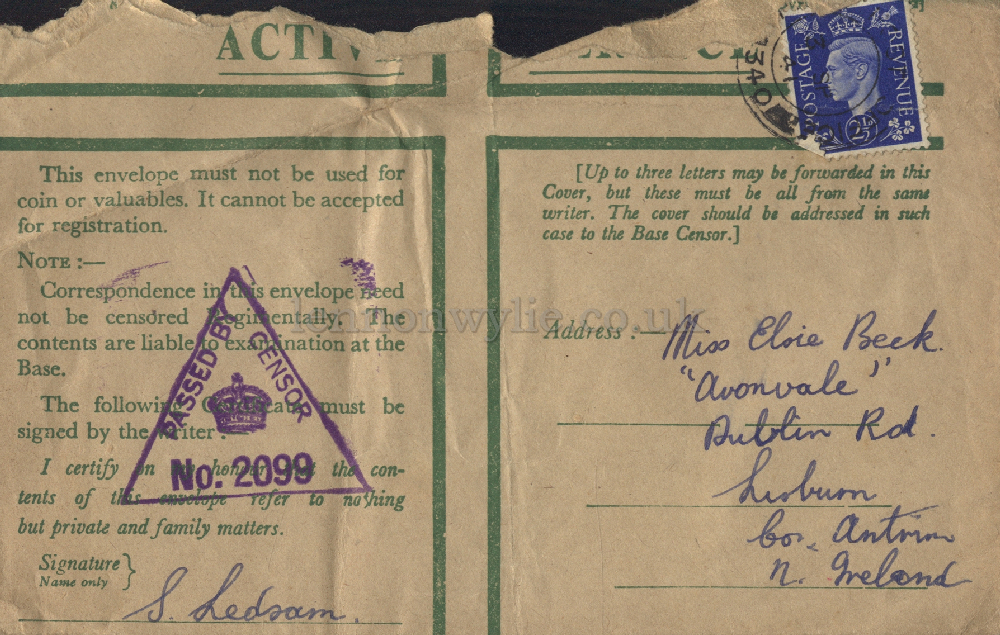 ACTIV
This envelope must not be used for
coin or valuables. It cannot be accepted
for registration.
NOTE :—
Correspondence in this envelope need
not be censored Regimentally. The
contents are liable to examination at the
Base.
The following Certificate must be
signed by the writer :—
I certify on my honour that the con-
tents of this envelope refer to nothing
but private and family matters.
Signature
Name only
S. Ledsam.
PASSED BY
CENSOR
No. 2099
1340
POSTAGE
REVENUE
2½D
[Up to three letters may be forwarded in this
Cover, but these must be all from the same
writer. The cover should be addressed in such
case to the Base Censor.]
Address :—
Miss Elsie Beck.
"Avonvale"
Dublin Rd.
Lisburn
Co. Antrim
N. Ireland
lennonwylie.co.uk